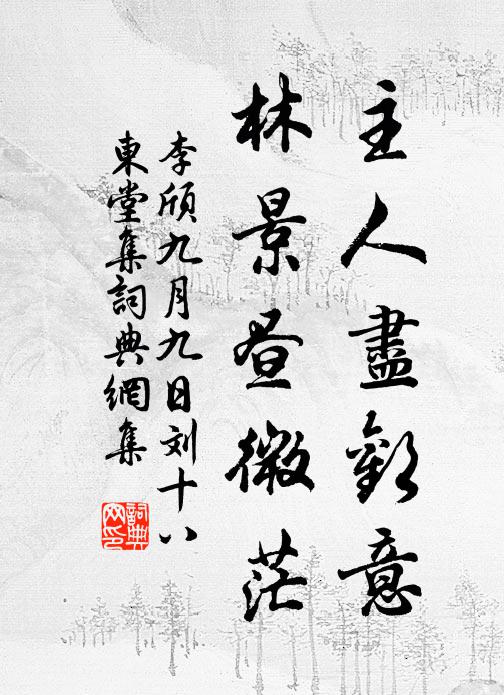 主人盡歡意
林景晝微茫
李頎九月九日刘十八
東堂集詞典網集
詞典
网印